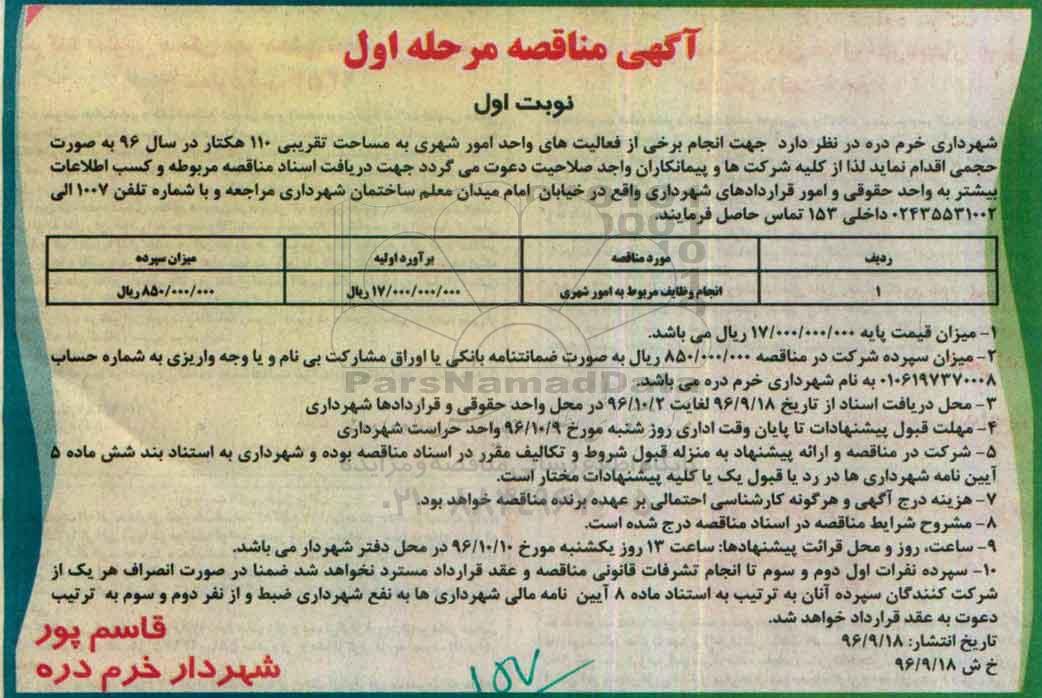 آگهی مناقصه مرحله اول
نوبت اول
شهرداری خرم دره در نظر دارد جهت انجام برخی از فعالیت های واحد امور شهری به مساحت تقریبی ۱۱۰ هکتار در سال ۹۶ به صورت
حجمی اقدام نماید لذا از کلیه شرکت ها و پیمانکاران واجد صلاحیت دعوت می گردد جهت دریافت اسناد مناقصه مربوطه و کسب اطلاعات
بیشتر به واحد حقوقی و امور قراردادهای شهرداری واقع در خیابان امام میدان معلم ساختمان شهرداری مراجعه و با شماره تلفن ۱۰۰۷ الی
۰۲۴۳۵۵۳۱۰۰۲ داخلی ۱۵۳ تماس حاصل فرمایند.
ردیف مورد مناقصه برآورد اولیه میزان سپرده
۱ انجام وظایف مربوط به امور شهری ۱۷/۰۰۰/۰۰۰/۰۰۰ ریال ۸۵۰/۰۰۰/۰۰۰ ریال
۱- میزان قیمت پایه ۱۷/۰۰۰/۰۰۰/۰۰۰ ریال می باشد.
۲- میزان سپرده شرکت در مناقصه ۸۵۰/۰۰۰/۰۰۰ ریال به صورت ضمانتنامه بانکی یا اوراق مشارکت بی نام و یا وجه واریزی به شماره حساب
۰۱۰۶۱۹۷۳۷۰۰۰۸ به نام شهرداری خرم دره می باشد.
۳- محل دریافت اسناد از تاریخ ۹۶/۹/۱۸ لغایت ۹۶/۱۰/۲ در محل واحد حقوقی و قراردادها شهرداری
۴- مهلت قبول پیشنهادات تا پایان وقت اداری روز شنبه مورخ ۹۶/۱۰/۹ واحد حراست شهرداری
۵- شرکت در مناقصه و ارائه پیشنهاد به منزله قبول شروط و تکالیف مقرر در اسناد مناقصه بوده و شهرداری به استناد بند شش ماده ۵
آیین نامه شهرداری ها در رد یا قبول یک یا کلیه پیشنهادات مختار است.
۷- هزینه درج آگهی و هرگونه کارشناسی احتمالی بر عهده برنده مناقصه خواهد بود.
۸- مشروح شرایط مناقصه در اسناد مناقصه درج شده است.
۹- ساعت، روز و محل قرائت پیشنهادها: ساعت ۱۳ روز یکشنبه مورخ ۹۶/۱۰/۱۰ در محل دفتر شهردار می باشد.
۱۰- سپرده نفرات اول دوم و سوم تا انجام تشرفات قانونی مناقصه و عقد قرارداد مسترد نخواهد شد ضمنا در صورت انصراف هر یک از
شرکت کنندگان سپرده آنان به ترتیب به استناد ماده ۸ آیین نامه مالی شهرداری ها به نفع شهرداری ضبط و از نفر دوم و سوم به ترتیب
دعوت به عقد قرارداد خواهد شد.
تاریخ انتشار: ۹۶/۹/۱۸
خ ش ۹۶/۹/۱۸
قاسم پور
شهردار خرم دره
۱۵۷
ParsNamadData